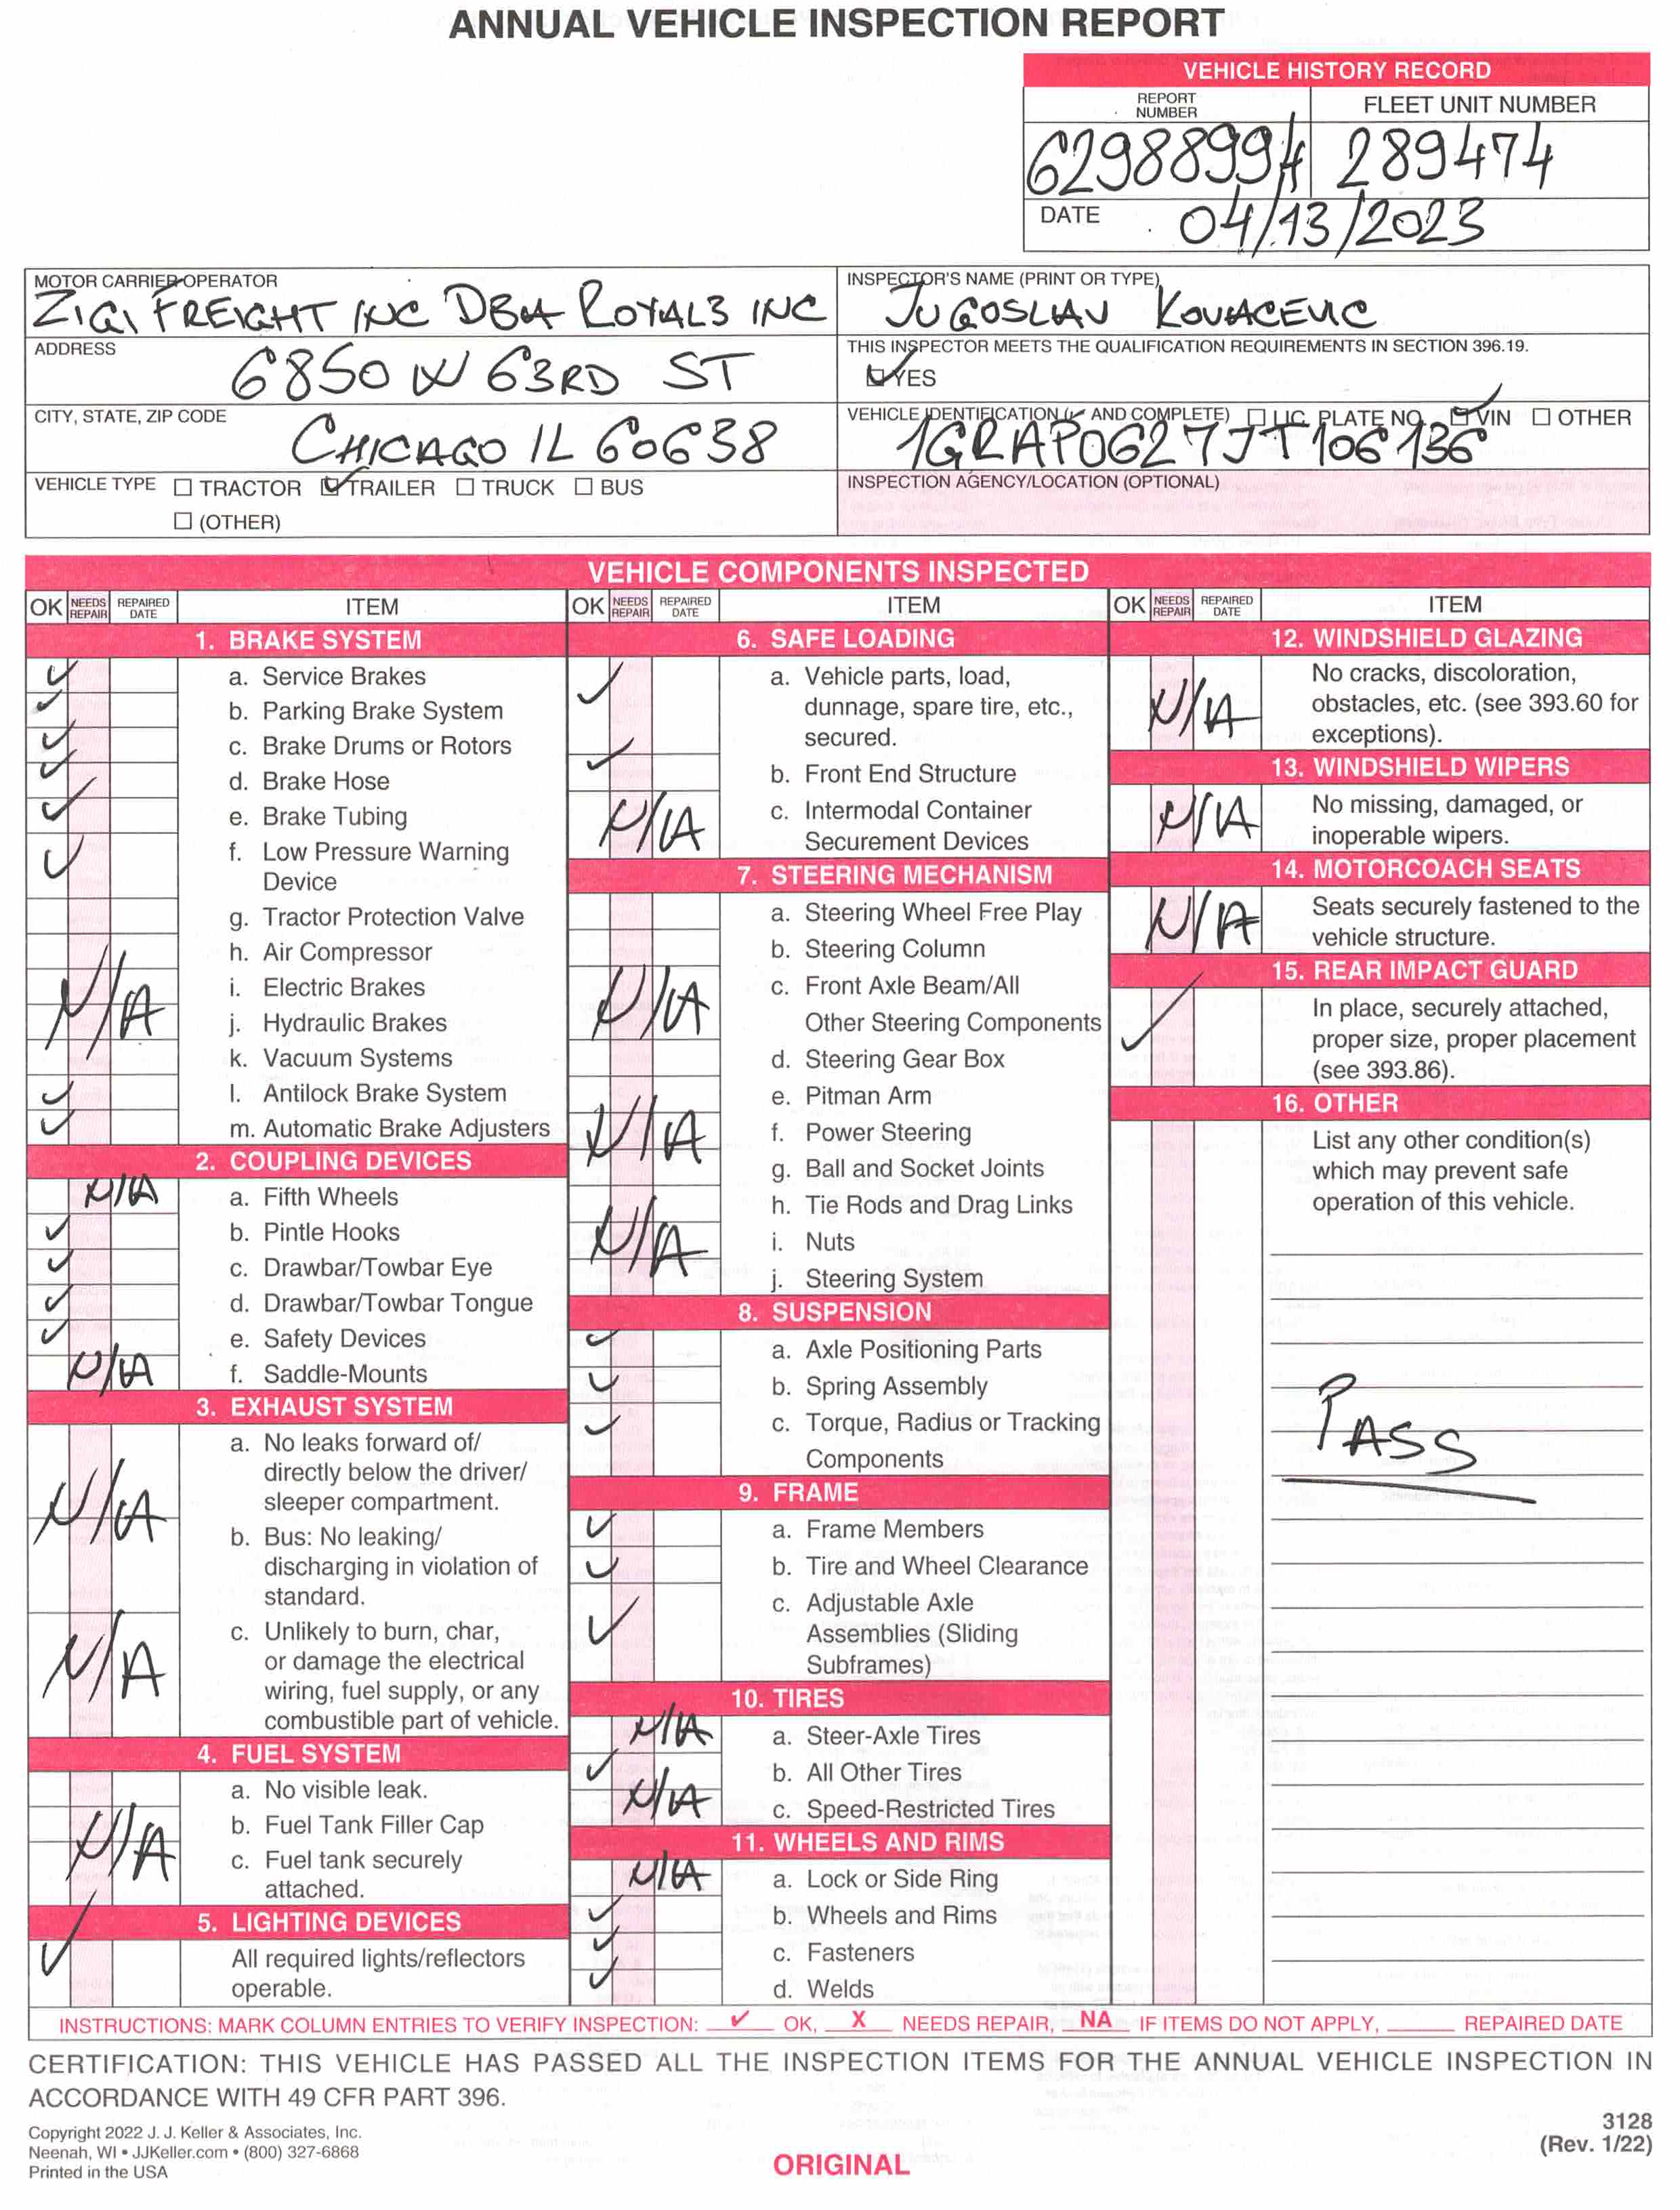 ANNUAL VEHICLE INSPECTION REPORT
VEHICLE HISTORY RECORD
REPORT NUMBER
FLEET UNIT NUMBER
6298899A 289474
DATE 04/13/2023
MOTOR CARRIER OPERATOR
ZIGI FREIGHT INC DBA ROYAL3 INC
INSPECTOR'S NAME (PRINT OR TYPE)
JUGOSLAV KOVACEVIC
ADDRESS
6850 W 63RD ST
THIS INSPECTOR MEETS THE QUALIFICATION REQUIREMENTS IN SECTION 396.19.
✓ YES
CITY, STATE, ZIP CODE
CHICAGO IL 60638
VEHICLE IDENTIFICATION (✓ AND COMPLETE) ☐ LIC. PLATE NO. ✓ VIN ☐ OTHER
1GRAP0627JT106136
VEHICLE TYPE ☐ TRACTOR ✓ TRAILER ☐ TRUCK ☐ BUS
☐ (OTHER)
INSPECTION AGENCY/LOCATION (OPTIONAL)
VEHICLE COMPONENTS INSPECTED
OK NEEDS REPAIR REPAIRED DATE ITEM
1. BRAKE SYSTEM
✓ a. Service Brakes
✓ b. Parking Brake System
✓ c. Brake Drums or Rotors
✓ d. Brake Hose
✓ e. Brake Tubing
✓ f. Low Pressure Warning
Device
g. Tractor Protection Valve
h. Air Compressor
N/A i. Electric Brakes
j. Hydraulic Brakes
k. Vacuum Systems
✓ l. Antilock Brake System
✓ m. Automatic Brake Adjusters
2. COUPLING DEVICES
N/A a. Fifth Wheels
✓ b. Pintle Hooks
✓ c. Drawbar/Towbar Eye
✓ d. Drawbar/Towbar Tongue
✓ e. Safety Devices
N/A f. Saddle-Mounts
3. EXHAUST SYSTEM
a. No leaks forward of/
directly below the driver/
sleeper compartment.
N/A
b. Bus: No leaking/
discharging in violation of
standard.
c. Unlikely to burn, char,
or damage the electrical
N/A wiring, fuel supply, or any
combustible part of vehicle.
4. FUEL SYSTEM
a. No visible leak.
b. Fuel Tank Filler Cap
N/A c. Fuel tank securely
attached.
5. LIGHTING DEVICES
✓ All required lights/reflectors
operable.
OK NEEDS REPAIR REPAIRED DATE ITEM
6. SAFE LOADING
✓ a. Vehicle parts, load,
dunnage, spare tire, etc.,
secured.
✓ b. Front End Structure
N/A c. Intermodal Container
Securement Devices
7. STEERING MECHANISM
a. Steering Wheel Free Play
b. Steering Column
N/A c. Front Axle Beam/All
Other Steering Components
d. Steering Gear Box
e. Pitman Arm
N/A f. Power Steering
g. Ball and Socket Joints
h. Tie Rods and Drag Links
N/A i. Nuts
j. Steering System
8. SUSPENSION
✓ a. Axle Positioning Parts
✓ b. Spring Assembly
✓ c. Torque, Radius or Tracking
Components
9. FRAME
✓ a. Frame Members
✓ b. Tire and Wheel Clearance
✓ c. Adjustable Axle
Assemblies (Sliding
Subframes)
10. TIRES
N/A a. Steer-Axle Tires
✓ b. All Other Tires
N/A c. Speed-Restricted Tires
11. WHEELS AND RIMS
N/A a. Lock or Side Ring
✓ b. Wheels and Rims
✓ c. Fasteners
✓ d. Welds
OK NEEDS REPAIR REPAIRED DATE ITEM
12. WINDSHIELD GLAZING
No cracks, discoloration,
N/A obstacles, etc. (see 393.60 for
exceptions).
13. WINDSHIELD WIPERS
N/A No missing, damaged, or
inoperable wipers.
14. MOTORCOACH SEATS
N/A Seats securely fastened to the
vehicle structure.
15. REAR IMPACT GUARD
✓ In place, securely attached,
proper size, proper placement
(see 393.86).
16. OTHER
List any other condition(s)
which may prevent safe
operation of this vehicle.
PASS
INSTRUCTIONS: MARK COLUMN ENTRIES TO VERIFY INSPECTION: ✓ OK, X NEEDS REPAIR, NA IF ITEMS DO NOT APPLY, ______ REPAIRED DATE
CERTIFICATION: THIS VEHICLE HAS PASSED ALL THE INSPECTION ITEMS FOR THE ANNUAL VEHICLE INSPECTION IN
ACCORDANCE WITH 49 CFR PART 396.
Copyright 2022 J. J. Keller & Associates, Inc.
Neenah, WI • JJKeller.com • (800) 327-6868
Printed in the USA
ORIGINAL
3128
(Rev. 1/22)